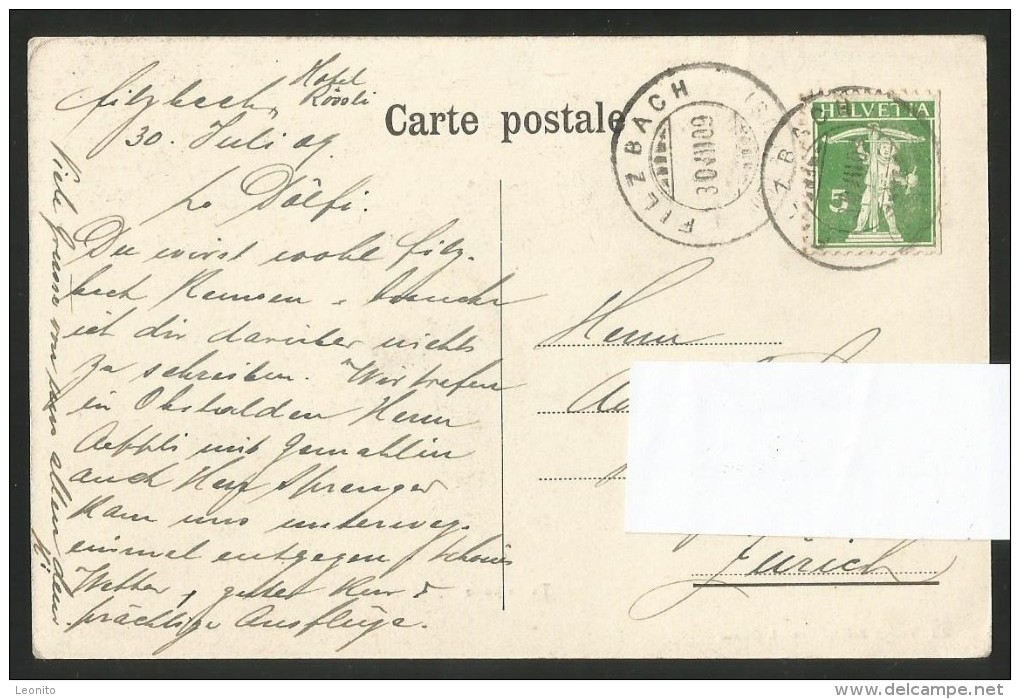 Filzbach, Hotel
Rössli
30. Juli 09.
Carte postale
FILZBACH
30 VII 09
HELVETIA
5
Dölfi.
Du wirst wohl Filz-
bach kennen, brauche
ich dir darüber nichts
zu schreiben. Wir trafen
in Obstalden Herrn
Aeppli mit Gemahlin
auch Herr Sprenger
kam uns unterwegs
einmal entgegen. Schönes
Wetter, guter Kur &
prächtige Ausflüge.
Viele Grüsse von uns allen dein
Herrn
Zürich
Leonito
delcampe.net